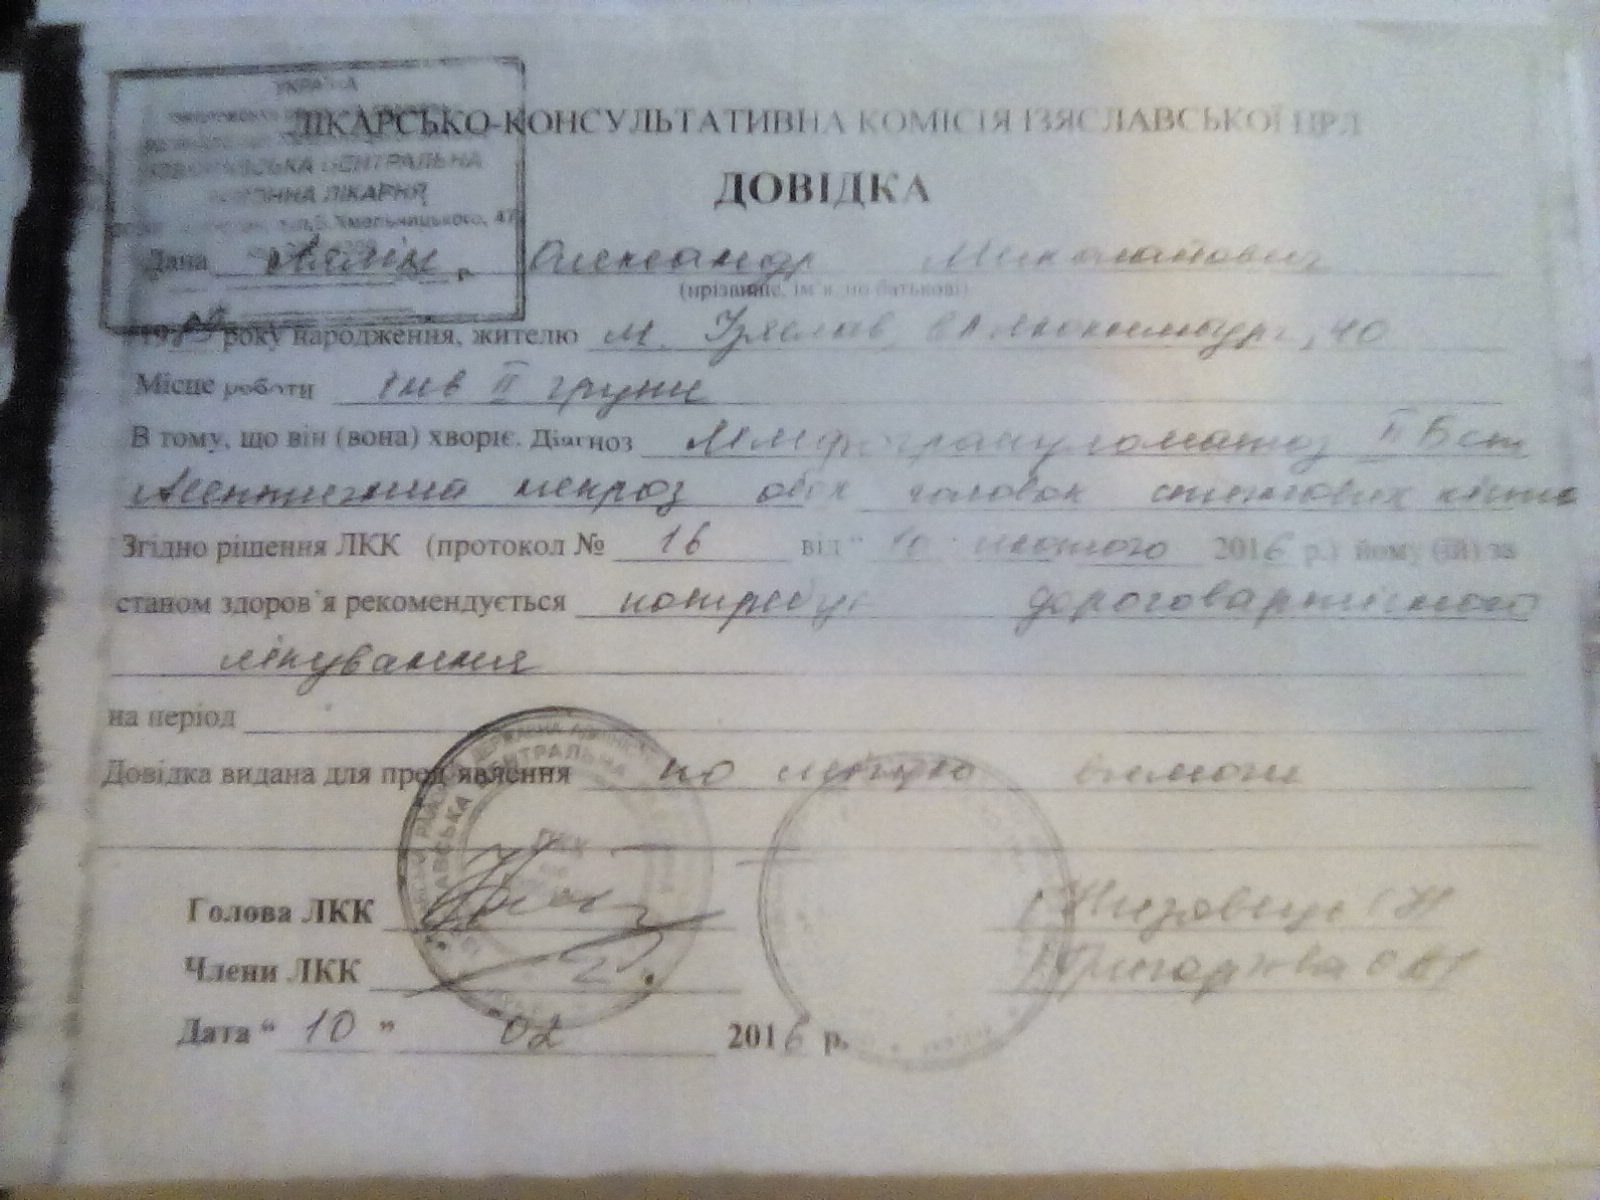 УКРАЇНА
ЦЕНТРАЛЬНА
ЛІКАРНЯ
Хмельницького, 47
ЛІКАРСЬКО-КОНСУЛЬТАТИВНА КОМІСІЯ ІЗЯСЛАВСЬКОЇ ЦРЛ
ДОВІДКА
Дана Олександр Миколайович
(прізвище, ім'я, по батькові)
19 року народження, жителю м. Ізяслав, 40
Місце роботи інв ІІ групи
В тому, що він (вона) хворіє. Діагноз Лімфогранулематоз ІІ Б ст
Асептичний некроз обох головок стегнових кісток
Згідно рішення ЛКК (протокол № 16 від "10" лютого 2016 р.) йому (їй) за
станом здоров'я рекомендується потребує дороговартісного
лікування
на період
Довідка видана для пред'явлення по місцю вимоги
ЛКК
Голова ЛКК
Члени ЛКК
Дата "10" 02 2016 р.